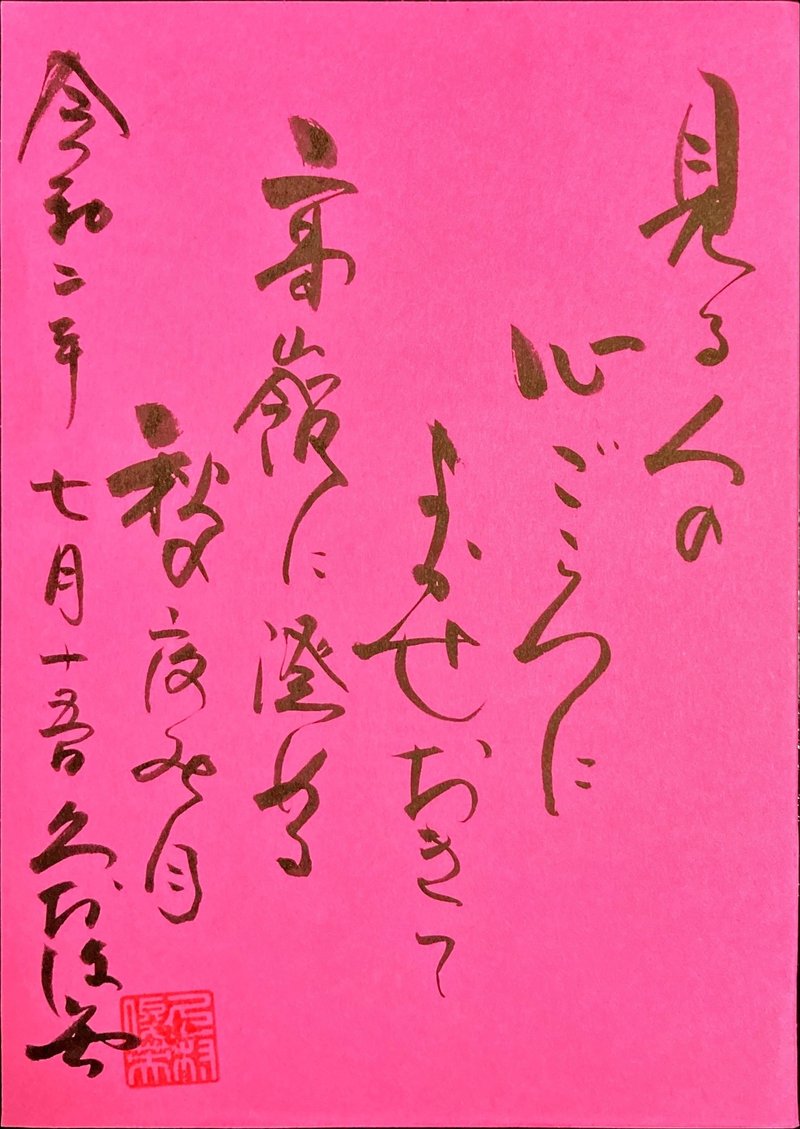 見る人の
心ごころに
まかせおきて
高嶺に澄める
秋の夜の月
令和二年 七月十五日